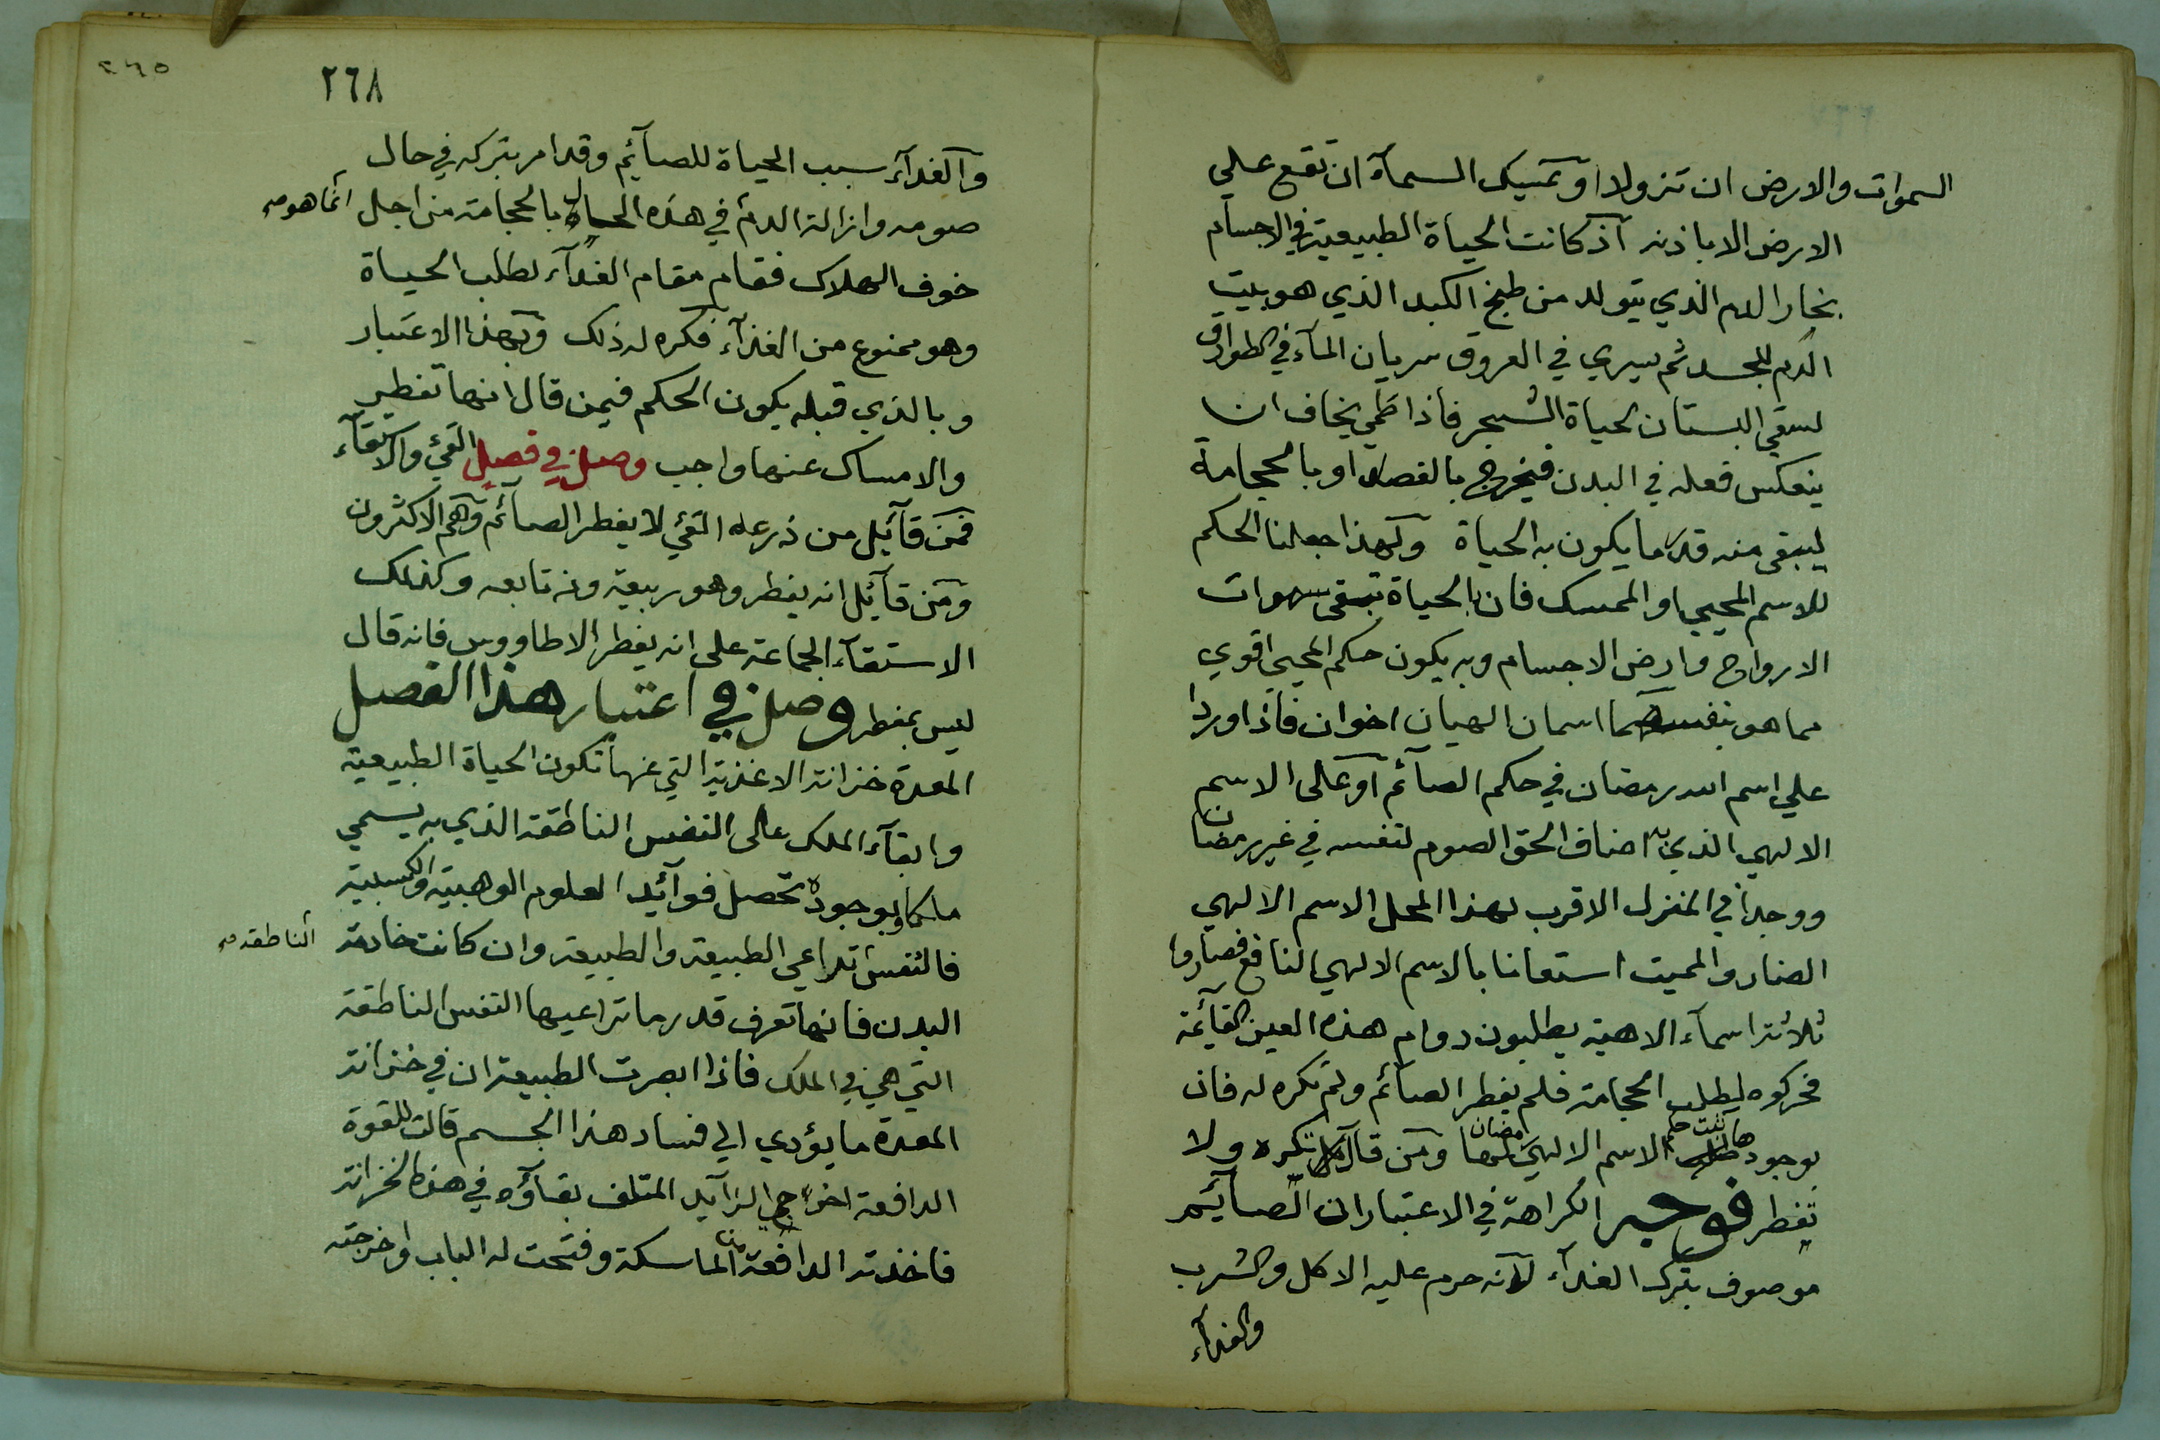 السموات والارض ان تزولا او يمسك السمآء ان تقع علي
الارض الا باذنه اذ كانت الحياة الطبيعية في الاجسام
بخار الدم الذي يتولد من طبخ الكبد الذي هو بيت
الدم للجسد ثم يسري في العروق سريان المآء في الطوارق
لسقي البستان لحياة الشجر فاذا طمي يخاف ان
ينعكس فعله في البدن فيخرج بالفصد او بالحجامة
ليبقى منه قدر ما يكون به الحياة ولهذا جعلنا الحكم
للاسم المحيي او الممسك فان بالحياة تبقى سموات
الارواح وارض الاجسام وبه يكون حكم المحيي اقوي
مما هو بنفسه فهما اسمان الهيان اخوان فاذا وردا
علي اسم الله رمضان في حكم الصآئم او على الاسم
الالهي الذي به اضاف الحق الصوم لنفسه في غير رمضان
ووجدا في المنزل الاقرب لهذا المحل الاسم الالهي
الضار والمميت استعانا بالاسم الالهي النافع فصاروا
ثلاثة اسمآء الاهية يطلبون دوام هذه العين القآئمة
فحركوه لطلب الحجامة فلم يفطر الصآئم ولم تكره له فان
بوجودها ثبت حكم الاسم الالهي رمضان لها ومن قال تكره ولا
تفطر فوجه الكراهة في الاعتبار ان الصآئم
موصوف بترك الغذآء لانه حرم عليه الاكل والشرب
والغذآء
٢٦٥
٢٦٨
والغذآء سبب الحياة للصآئم وقد امر بتركه في حال
صومه وازالة الدم في هذه الحال بالحجامة من اجل
انما هو صح
خوف الهلاك فقام مقام الغذآء لطلب الحياة
وهو ممنوع من الغذآء فكره له ذلك وبهذا الاعتبار
وبالذي قبله يكون الحكم فيمن قال انها تفطر
والامساك عنها واجب وصل في فصل القئ والاستقآء
فمن قآئل من ذرعه القئ لا يفطر الصآئم وهم الاكثرون
ومن قآئل انه يفطر وهو ربيعة ومن تابعه وكذلك
الاستقآء الجماعة على انه يفطر الا طاووس فانه قال
ليس بمفطر وصل في اعتبار هذا الفصل
المعدة خزانة الاغذية التي عنها تكون الحياة الطبيعية
وابقآء الملك على النفس الناطقة الذي به يسمي
ملكا وبوجوده تحصل فوآئد العلوم الوهبية والكسبية
فالنفس تراعي الطبيعة والطبيعة وان كانت خادمة
الناطقة صح
البدن فانها تعرف قدر ما تراعيها النفس الناطقة
التي هي في الملك فاذا ابصرت الطبيعة ان في خزانة
المعدة ما يؤدي الي فساد هذا الجسم قالت للقوة
الدافعة اخرجي الزآيد المتلف بقاؤه في هذه الخزانة
فاخذته الدافعة من الماسكة وفتحت له الباب واخرجته